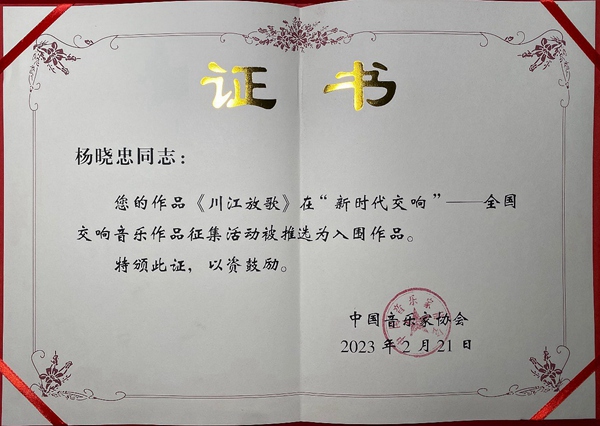 证书
杨晓忠同志：
您的作品《川江放歌》在“新时代交响”——全国
交响音乐作品征集活动被推选为入围作品。
特颁此证，以资鼓励。
中国音乐家协会
2023年2月21日